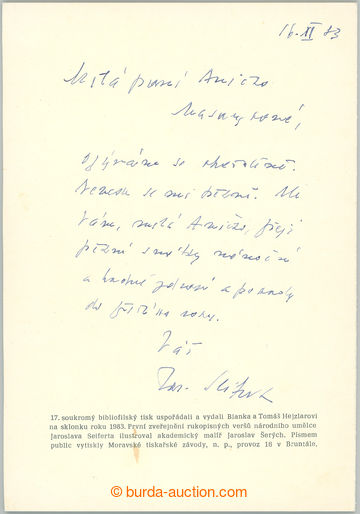 16. XI 83
Milá paní Aničko
ozývám se
Vám, milá Aničko, přeji
pěkné svátky vánoční
a hodně zdraví a pohody
do příštího roku.
Váš
Jar. Seifert
17. soukromý bibliofilský tisk uspořádali a vydali Blanka a Tomáš Hejzlarovi
na sklonku roku 1983. První zveřejnění rukopisných veršů národního umělce
Jaroslava Seiferta ilustroval akademický malíř Jaroslav Šerých. Písmem
public vytiskly Moravské tiskařské závody, n. p., provoz 18 v Bruntále.
burda-auction.com